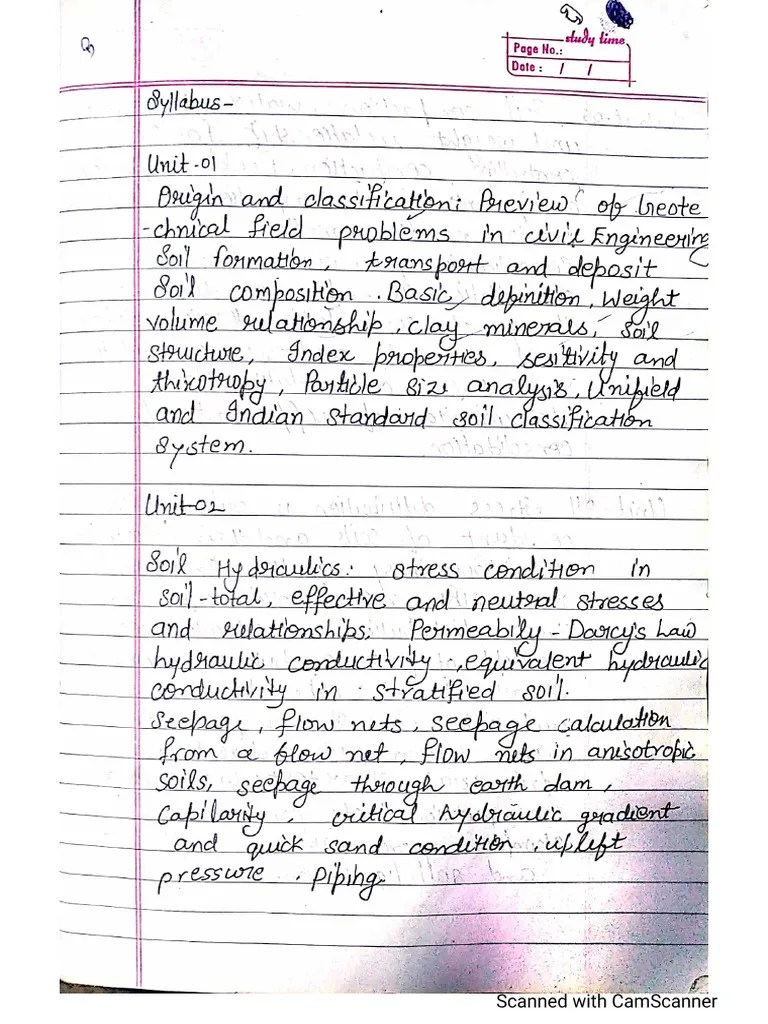 study time
Page No.:
Date : / /
Syllabus-
Unit-01
Origin and classification: Preview of Geote
-chnical field problems in civil Engineering
Soil formation, transport and deposit
Soil composition. Basic definition, Weight
volume relationship, clay minerals, Soil
structure, Index properties, sesitivity and
thixotropy, Particle size analysis, Unifield
and Indian Standard Soil classification
System.
Unit-02
Soil Hydraulics: stress condition in
soil-total, effective and neutral stresses
and relationships. Permeabily - Darcy's Law
hydraulic conductivity, equivalent hydraulic
conductivity in stratified soil.
Seepage, flow nets, seepage calculation
from a flow net, flow nets in anisotropic
soils, seepage through earth dam,
Capilarity, critical hydraulic gradient
and quick sand condition, upleft
pressure, piping.
Scanned with CamScanner